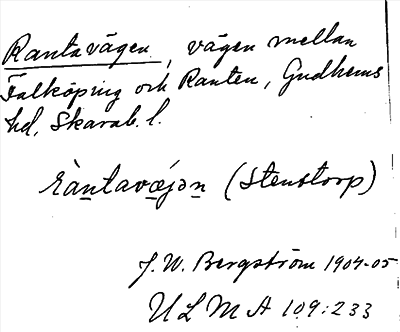 Rantavägen, vägen mellan
Falköping och Ranten, Gudhems
hd, Skarab. l.
ràntavæ̀jən (Stenstorp)
J. W. Bergström 1904-05
ULMA 109:233